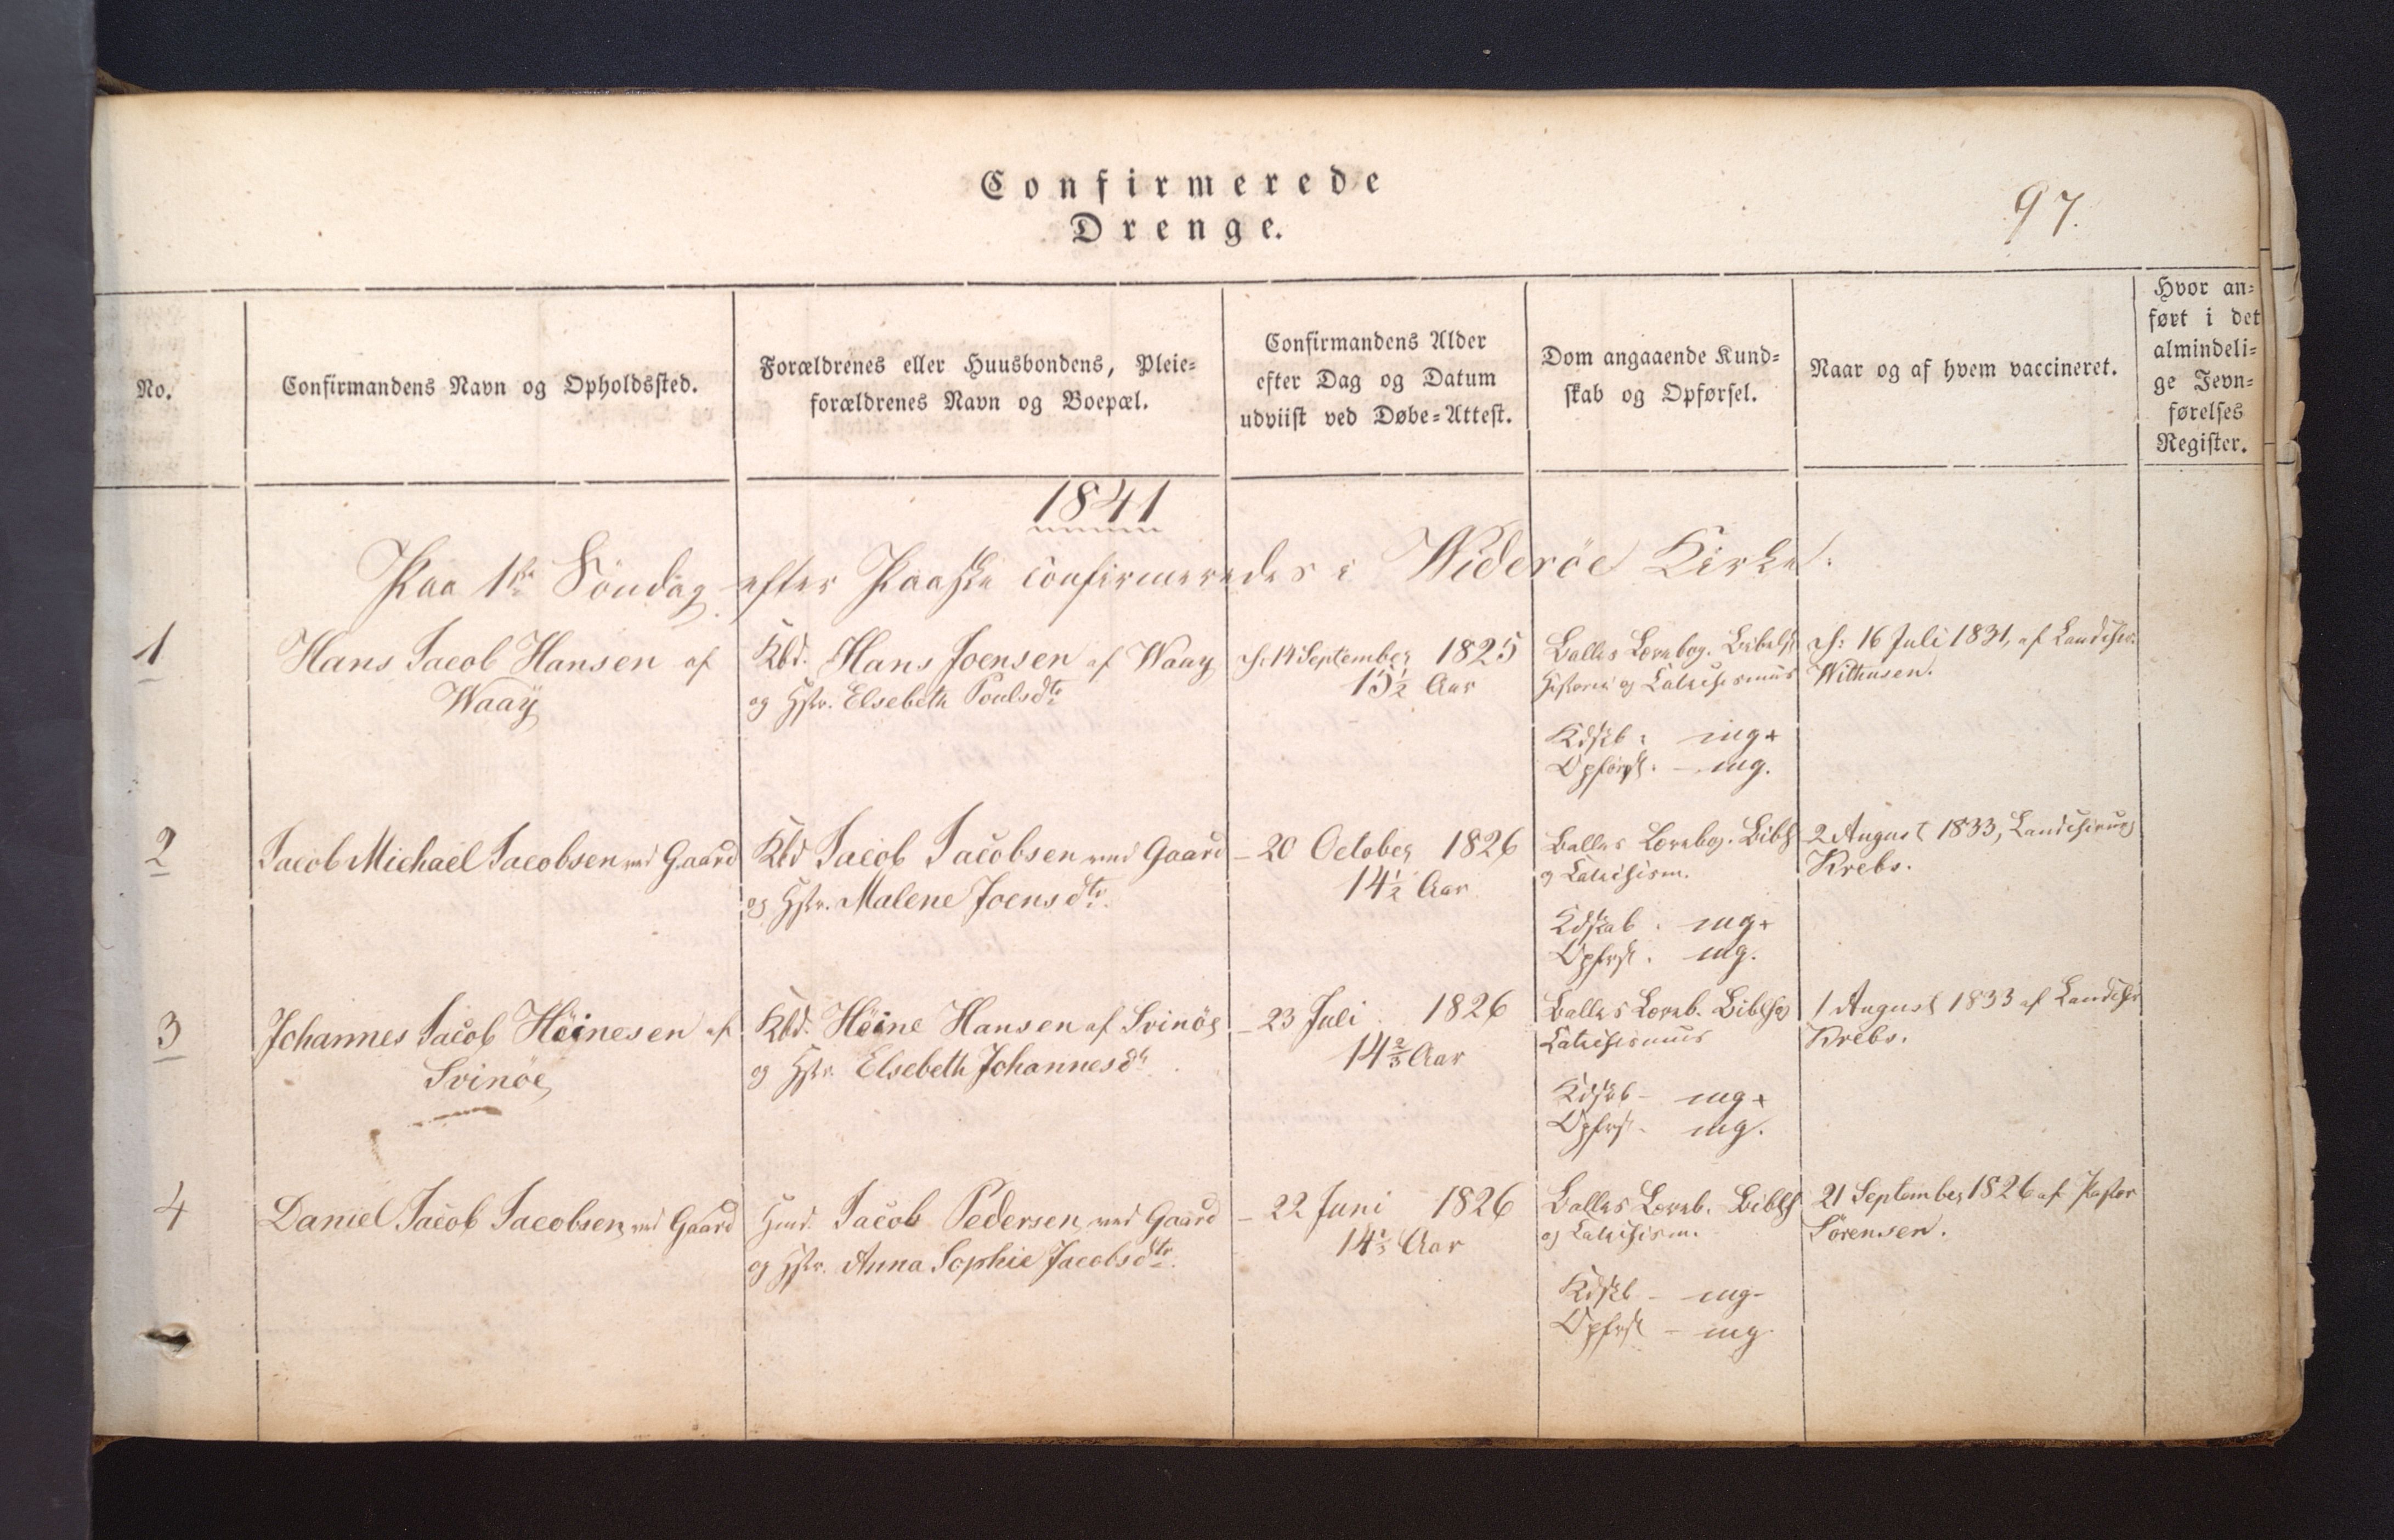 Confirmerede
Drenge.
97.
No.
Confirmandens Navn og Opholdssted.
Forældrenes eller Huusbondens, Pleie-
forældrenes Navn og Boepæl.
Confirmandens Alder
efter Dag og Datum
udviist ved Døbe-Attest.
Dom angaaende Kund-
skab og Opførsel.
Naar og af hvem vaccineret.
Hvor an-
ført i det
almindeli-
ge Jevn-
førelses
Register.
1841
Paa 1ste Söndag efter Paaske confirmeredes i Wideröe Kirke:
1
Hans Jacob Hansen af
Waaÿ
Kbd. Hans Joensen af Waay
og Hstr. Elsebeth Poulsdtr
f: 14 September 1825
15½ Aar
Balles Lærebog. Bibelsk
Historie og Catechismus
Kdskb: mg+
Opførsl. - mg.
f: 16 Juli 1831, af Landchir.
Withusen.
2
Jacob Michael Jacobsen ved Gaard
Kbd Jacob Jacobsen ved Gaard
og Hstr. Malene Joensdtr.
- 20 October 1826
14½ Aar
Balles Lærebog. Biblh
og Catechism.
Kdskab. mg+
Opfrsl. mg.
2 August 1833, Landchirurg
Krebs.
3
Johannes Jacob Höinesen af
Svinöe
Kbd. Höine Hansen af Svinöe
og Hstr. Elsebeth Johannesdtr
- 23 Juli 1826
14⅔ Aar
Balles Læreb. Biblh og
Catechismus
Kdskb - mg+
Opfrsl - mg.
1 August 1833 af Landchir
Krebs.
4
Daniel Jacob Jacobsen ved Gaard
Hmd. Jacob Pedersen ved Gaard
og Hstr. Anna Sophie Jacobsdtr.
- 22 Juni 1826
14⅓ Aar
Balles Læreb. Biblh
og Catechism.
Kdskb - mg-
Opfrsl - mg.
21 September 1826 af Pastor
Sörensen.